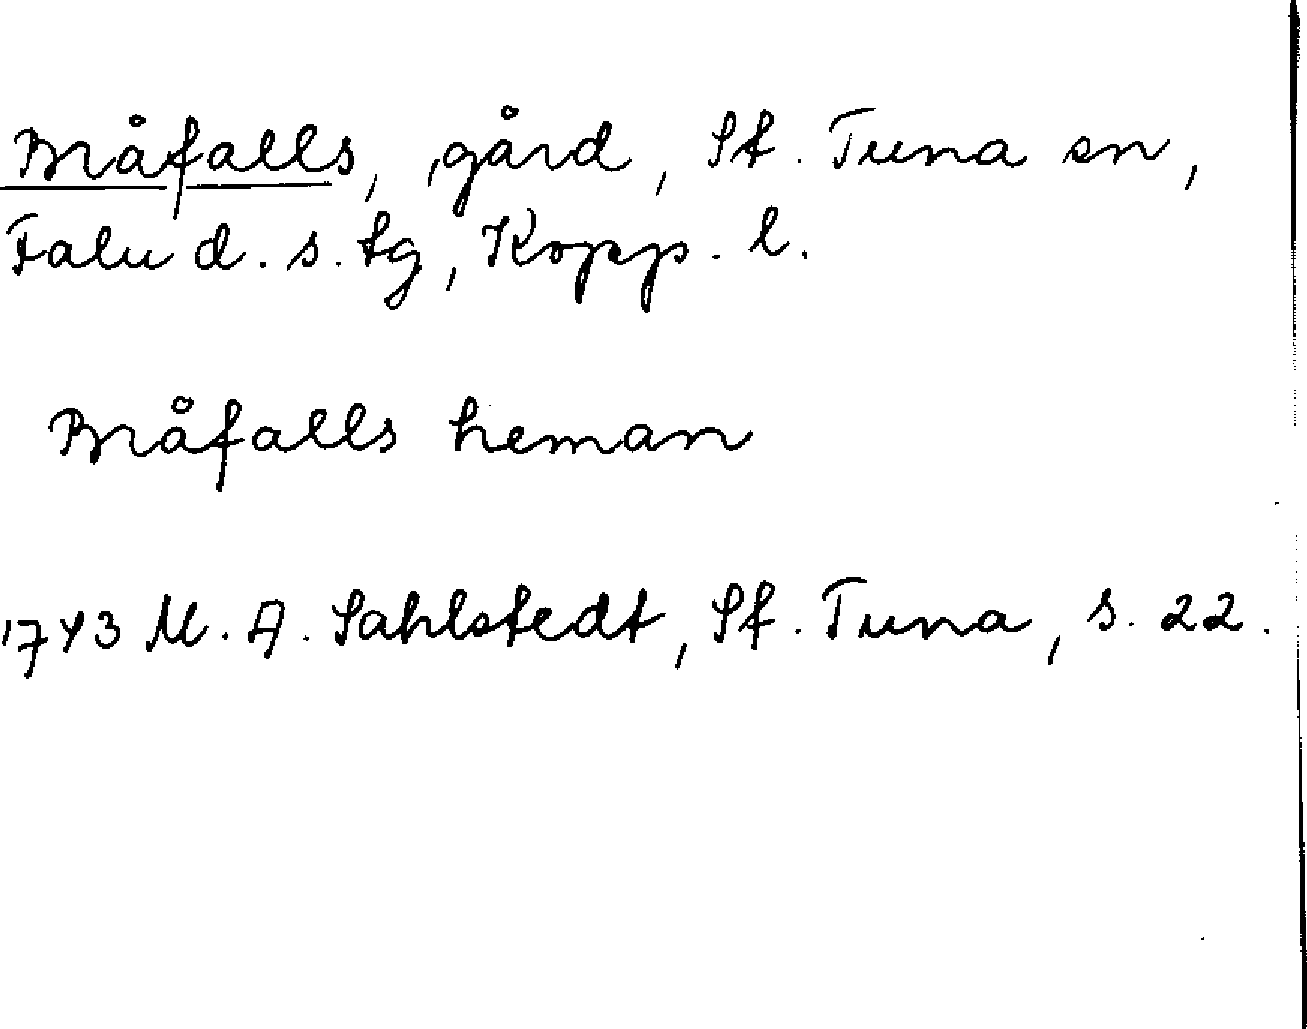 Bråfalls, gård, St. Tuna sn,
Falu d. s. tg, Kopp. l.
Bråfalls heman
1743 M. A. Sahlstedt, St. Tuna, s. 22.